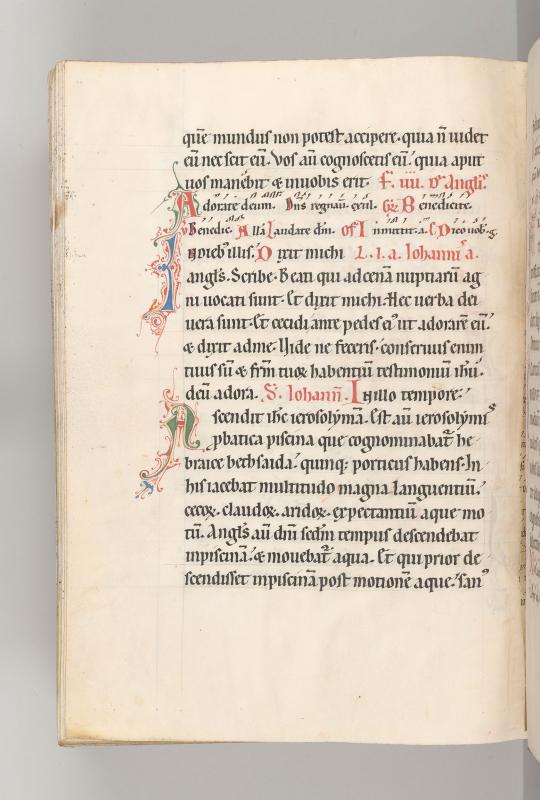 quē mundus non potest accipere. quia ñ uidet
eū nec scit eū. Vos aū cognoscetis eū. quia aput
uos manebit & in uobis erit. f. iiii. de Angľis.
Adorate deum. Dns regnau. exul. Gr Benedicite.
V Benedic. Allā Laudate dm. Of In mittit a. C Dico uob. g.
In dieb' illis. Dixit michi L. l. a. Iohannis a.
angls. Scribe. Beati qui ad cenā nuptiarū ag
ni uocati sunt. Et dixit michi. Hec uerba dei
uera sunt. Et cecidi ante pedes ei' ut adorarē eū.
& dixit ad me. Uide ne feceris. conseruus enim
tuus sū & frm tuoꝝ habentiū testimoniū ihu.
deū adora. S. Iohann. In illo tempore.
Ascendit ihc ierosolymā. Est aū ierosolymis
pbatica piscina que cognominabat he
braice bethsaida. quinq; porticus habens. In
his iacebat multitudo magna languentiū.
cecoꝝ. claudoꝝ. aridoꝝ. expectantiū aque mo
tū. Angls aū dni scdm tempus descendebat
in piscinā. & mouebat aqua. Et qui prior de
scendisset in piscinā post motionē aque. san'